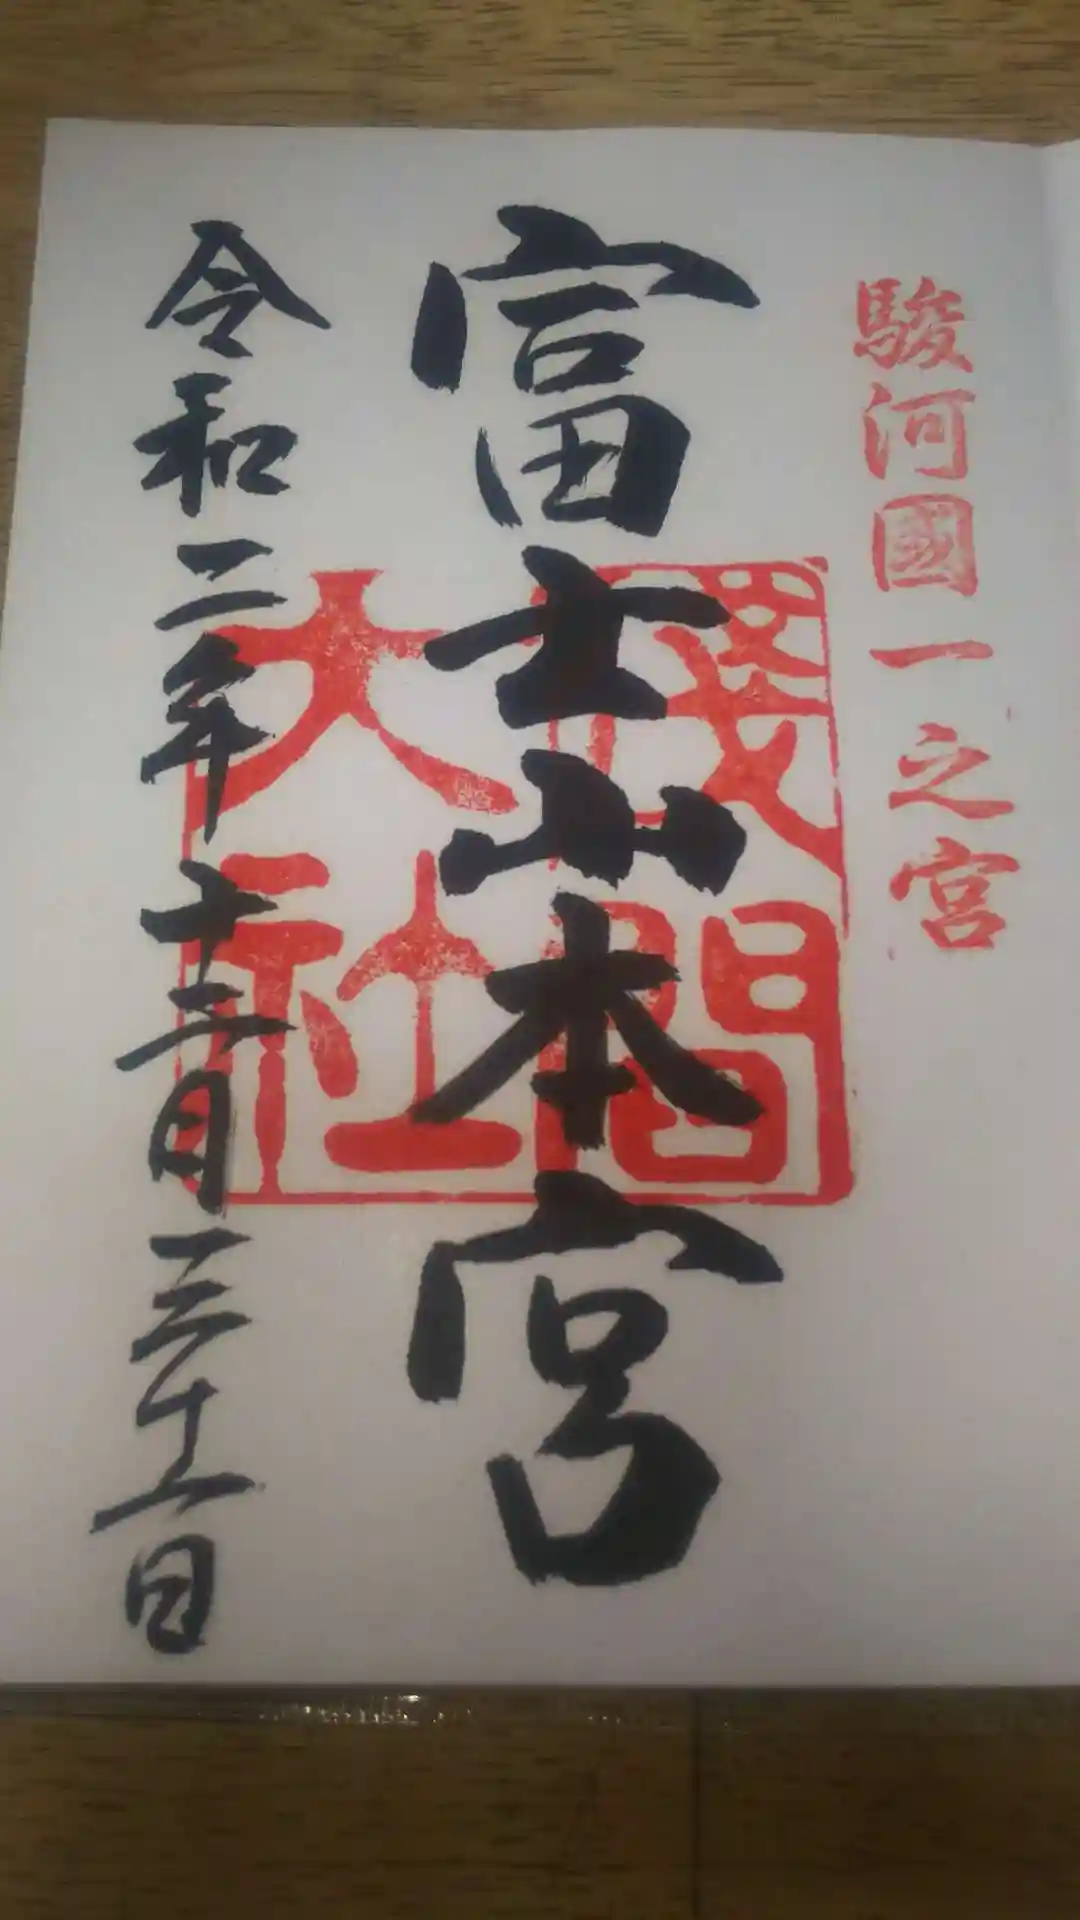 駿河國一之宮
富士山本宮
淺間大社
令和二年十二月三十一日